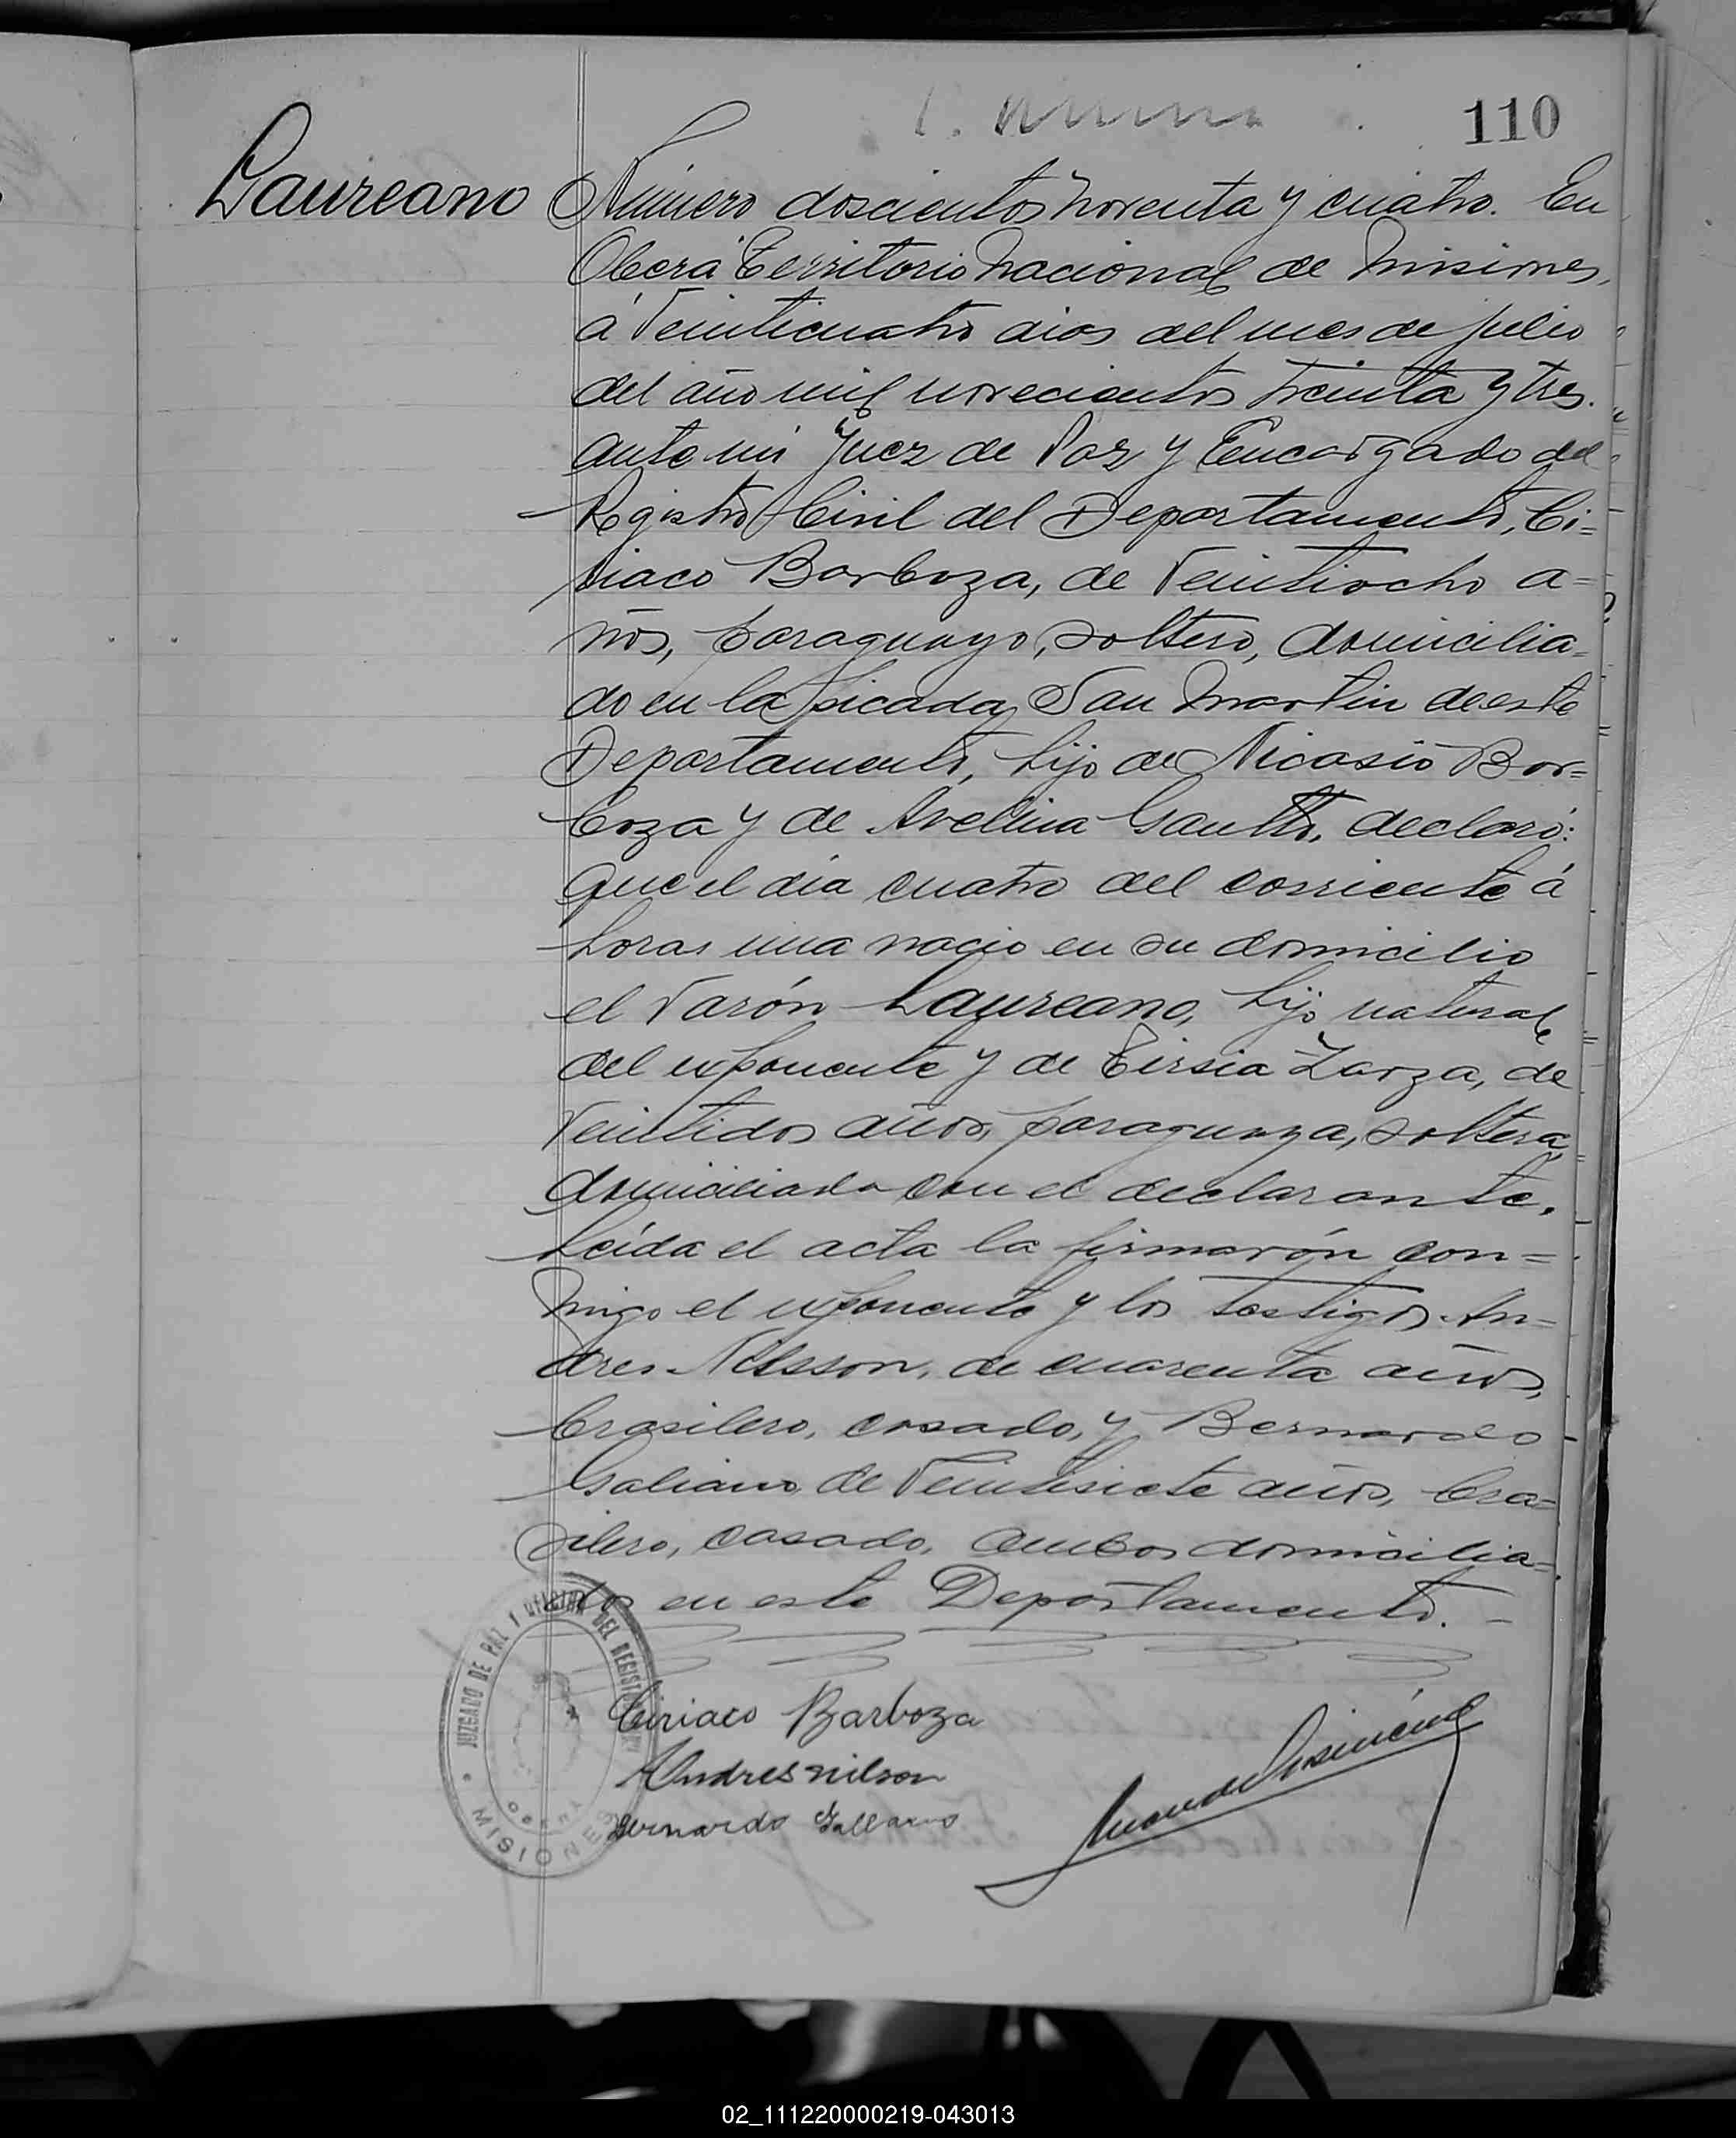 110
Laureano
Número doscientos noventa y cuatro. En
Oberá Territorio Nacional de Misiones,
á veinticuatro dias del mes de julio
del año mil novecientos treinta y tres.
ante mi Juez de Paz y Encargado del
Registro Civil del Departamento, Ci=
riaco Barboza, de veintiocho a=
ños, paraguayo, soltero, domicilia=
do en la picada San Martin de este
Departamento, hijo de Nicasio Bar=
boza y de Avelina Gautto, declaró:
que el dia cuatro del corriente á
horas una nació en su domicilio
el varón Laureano, hijo natural
del exponente y de Tirsia Zarza, de
veintidos años, paraguaya, soltera,
domiciliada con el declarante.
Leída el acta la firmarón con=
migo el exponente y los testigos An=
dres Nilsson, de cuarenta años,
brasilero, casado, y Bernardo
Galiano, de veintisiete años, bra=
silero, casado, ambos domicilia=
dos en este Departamento. -
JUZGADO DE PAZ Y OFICINA DEL REGISTRO
OBERA
MISIONES
Ciriaco Barboza
Andres nilson
Bernardo Gallano
02_111220000219-043013